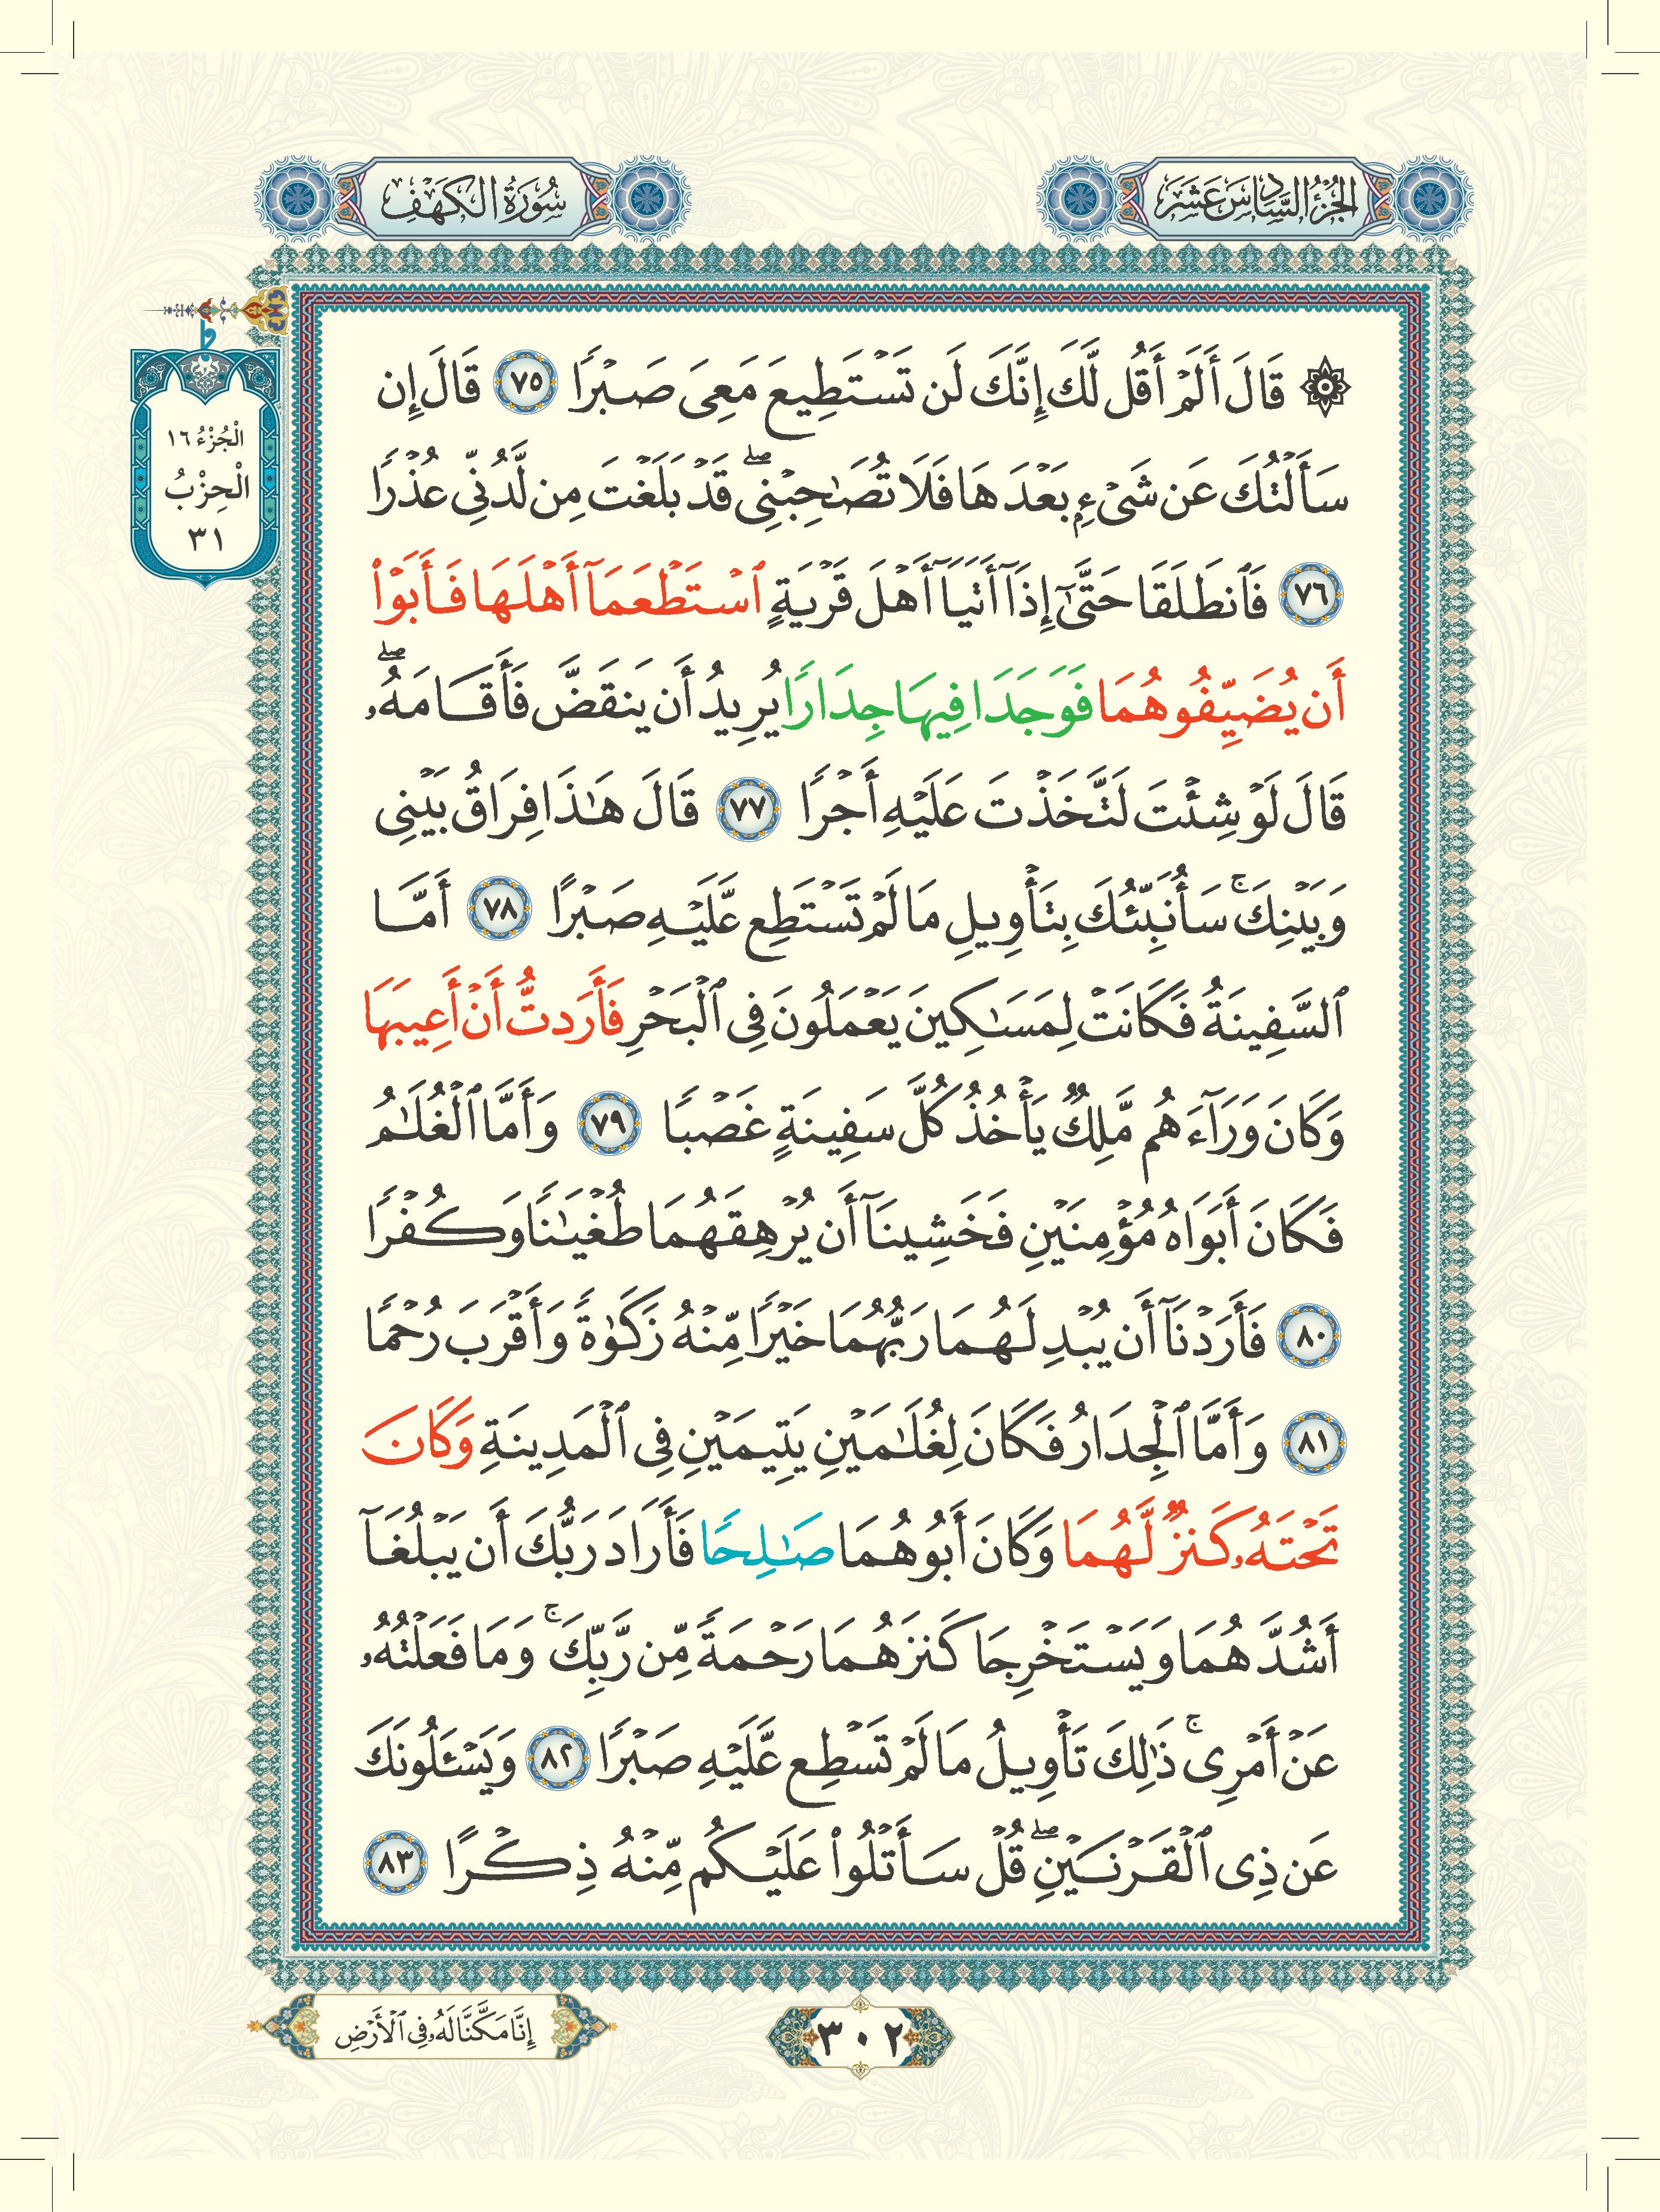 الجُزْءُ السَّادِسَ عَشَرَ
سُورَةُ الكَهْفِ
الْجُزْءُ ١٦
الْحِزْبُ
٣١
۞ قَالَ أَلَمْ أَقُل لَّكَ إِنَّكَ لَن تَسْتَطِيعَ مَعِىَ صَبْرًا ٧٥ قَالَ إِن
سَأَلْتُكَ عَن شَىْءٍۭ بَعْدَهَا فَلَا تُصَٰحِبْنِى ۖ قَدْ بَلَغْتَ مِن لَّدُنِّى عُذْرًا
٧٦ فَٱنطَلَقَا حَتَّىٰٓ إِذَآ أَتَيَآ أَهْلَ قَرْيَةٍ ٱسْتَطْعَمَآ أَهْلَهَا فَأَبَوْا۟
أَن يُضَيِّفُوهُمَا فَوَجَدَا فِيهَا جِدَارًا يُرِيدُ أَن يَنقَضَّ فَأَقَامَهُۥ ۖ
قَالَ لَوْ شِئْتَ لَتَّخَذْتَ عَلَيْهِ أَجْرًا ٧٧ قَالَ هَٰذَا فِرَاقُ بَيْنِى
وَبَيْنِكَ ۚ سَأُنَبِّئُكَ بِتَأْوِيلِ مَا لَمْ تَسْتَطِع عَّلَيْهِ صَبْرًا ٧٨ أَمَّا
ٱلسَّفِينَةُ فَكَانَتْ لِمَسَٰكِينَ يَعْمَلُونَ فِى ٱلْبَحْرِ فَأَرَدتُّ أَنْ أَعِيبَهَا
وَكَانَ وَرَآءَهُم مَّلِكٌ يَأْخُذُ كُلَّ سَفِينَةٍ غَصْبًا ٧٩ وَأَمَّا ٱلْغُلَٰمُ
فَكَانَ أَبَوَاهُ مُؤْمِنَيْنِ فَخَشِينَآ أَن يُرْهِقَهُمَا طُغْيَٰنًا وَكُفْرًا
٨٠ فَأَرَدْنَآ أَن يُبْدِلَهُمَا رَبُّهُمَا خَيْرًا مِّنْهُ زَكَوٰةً وَأَقْرَبَ رُحْمًا
٨١ وَأَمَّا ٱلْجِدَارُ فَكَانَ لِغُلَٰمَيْنِ يَتِيمَيْنِ فِى ٱلْمَدِينَةِ وَكَانَ
تَحْتَهُۥ كَنزٌ لَّهُمَا وَكَانَ أَبُوهُمَا صَٰلِحًا فَأَرَادَ رَبُّكَ أَن يَبْلُغَآ
أَشُدَّهُمَا وَيَسْتَخْرِجَا كَنزَهُمَا رَحْمَةً مِّن رَّبِّكَ ۚ وَمَا فَعَلْتُهُۥ
عَنْ أَمْرِى ۚ ذَٰلِكَ تَأْوِيلُ مَا لَمْ تَسْطِع عَّلَيْهِ صَبْرًا ٨٢ وَيَسْـَٔلُونَكَ
عَن ذِى ٱلْقَرْنَيْنِ ۖ قُلْ سَأَتْلُوا۟ عَلَيْكُم مِّنْهُ ذِكْرًا ٨٣
٣٠٢
إِنَّا مَكَّنَّا لَهُۥ فِى ٱلْأَرْضِ